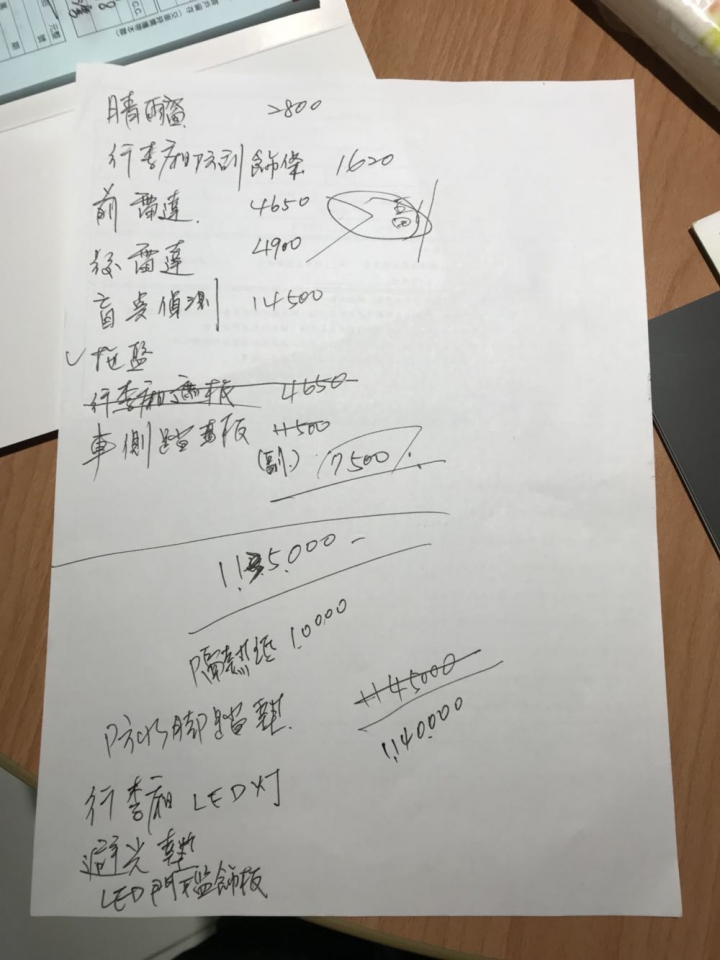 晴雨窗 2800
行李廂防刮飾條 1620
前雷達 4650
後雷達 4900
盲點偵測 14500
✓ 托盤
行李廂 板 4650
車側踏板 11500
(副) 17500
隔熱紙 10000
防水腳踏墊
1145000
1140000
行李廂 LED灯
避光墊
LED門檻飾板